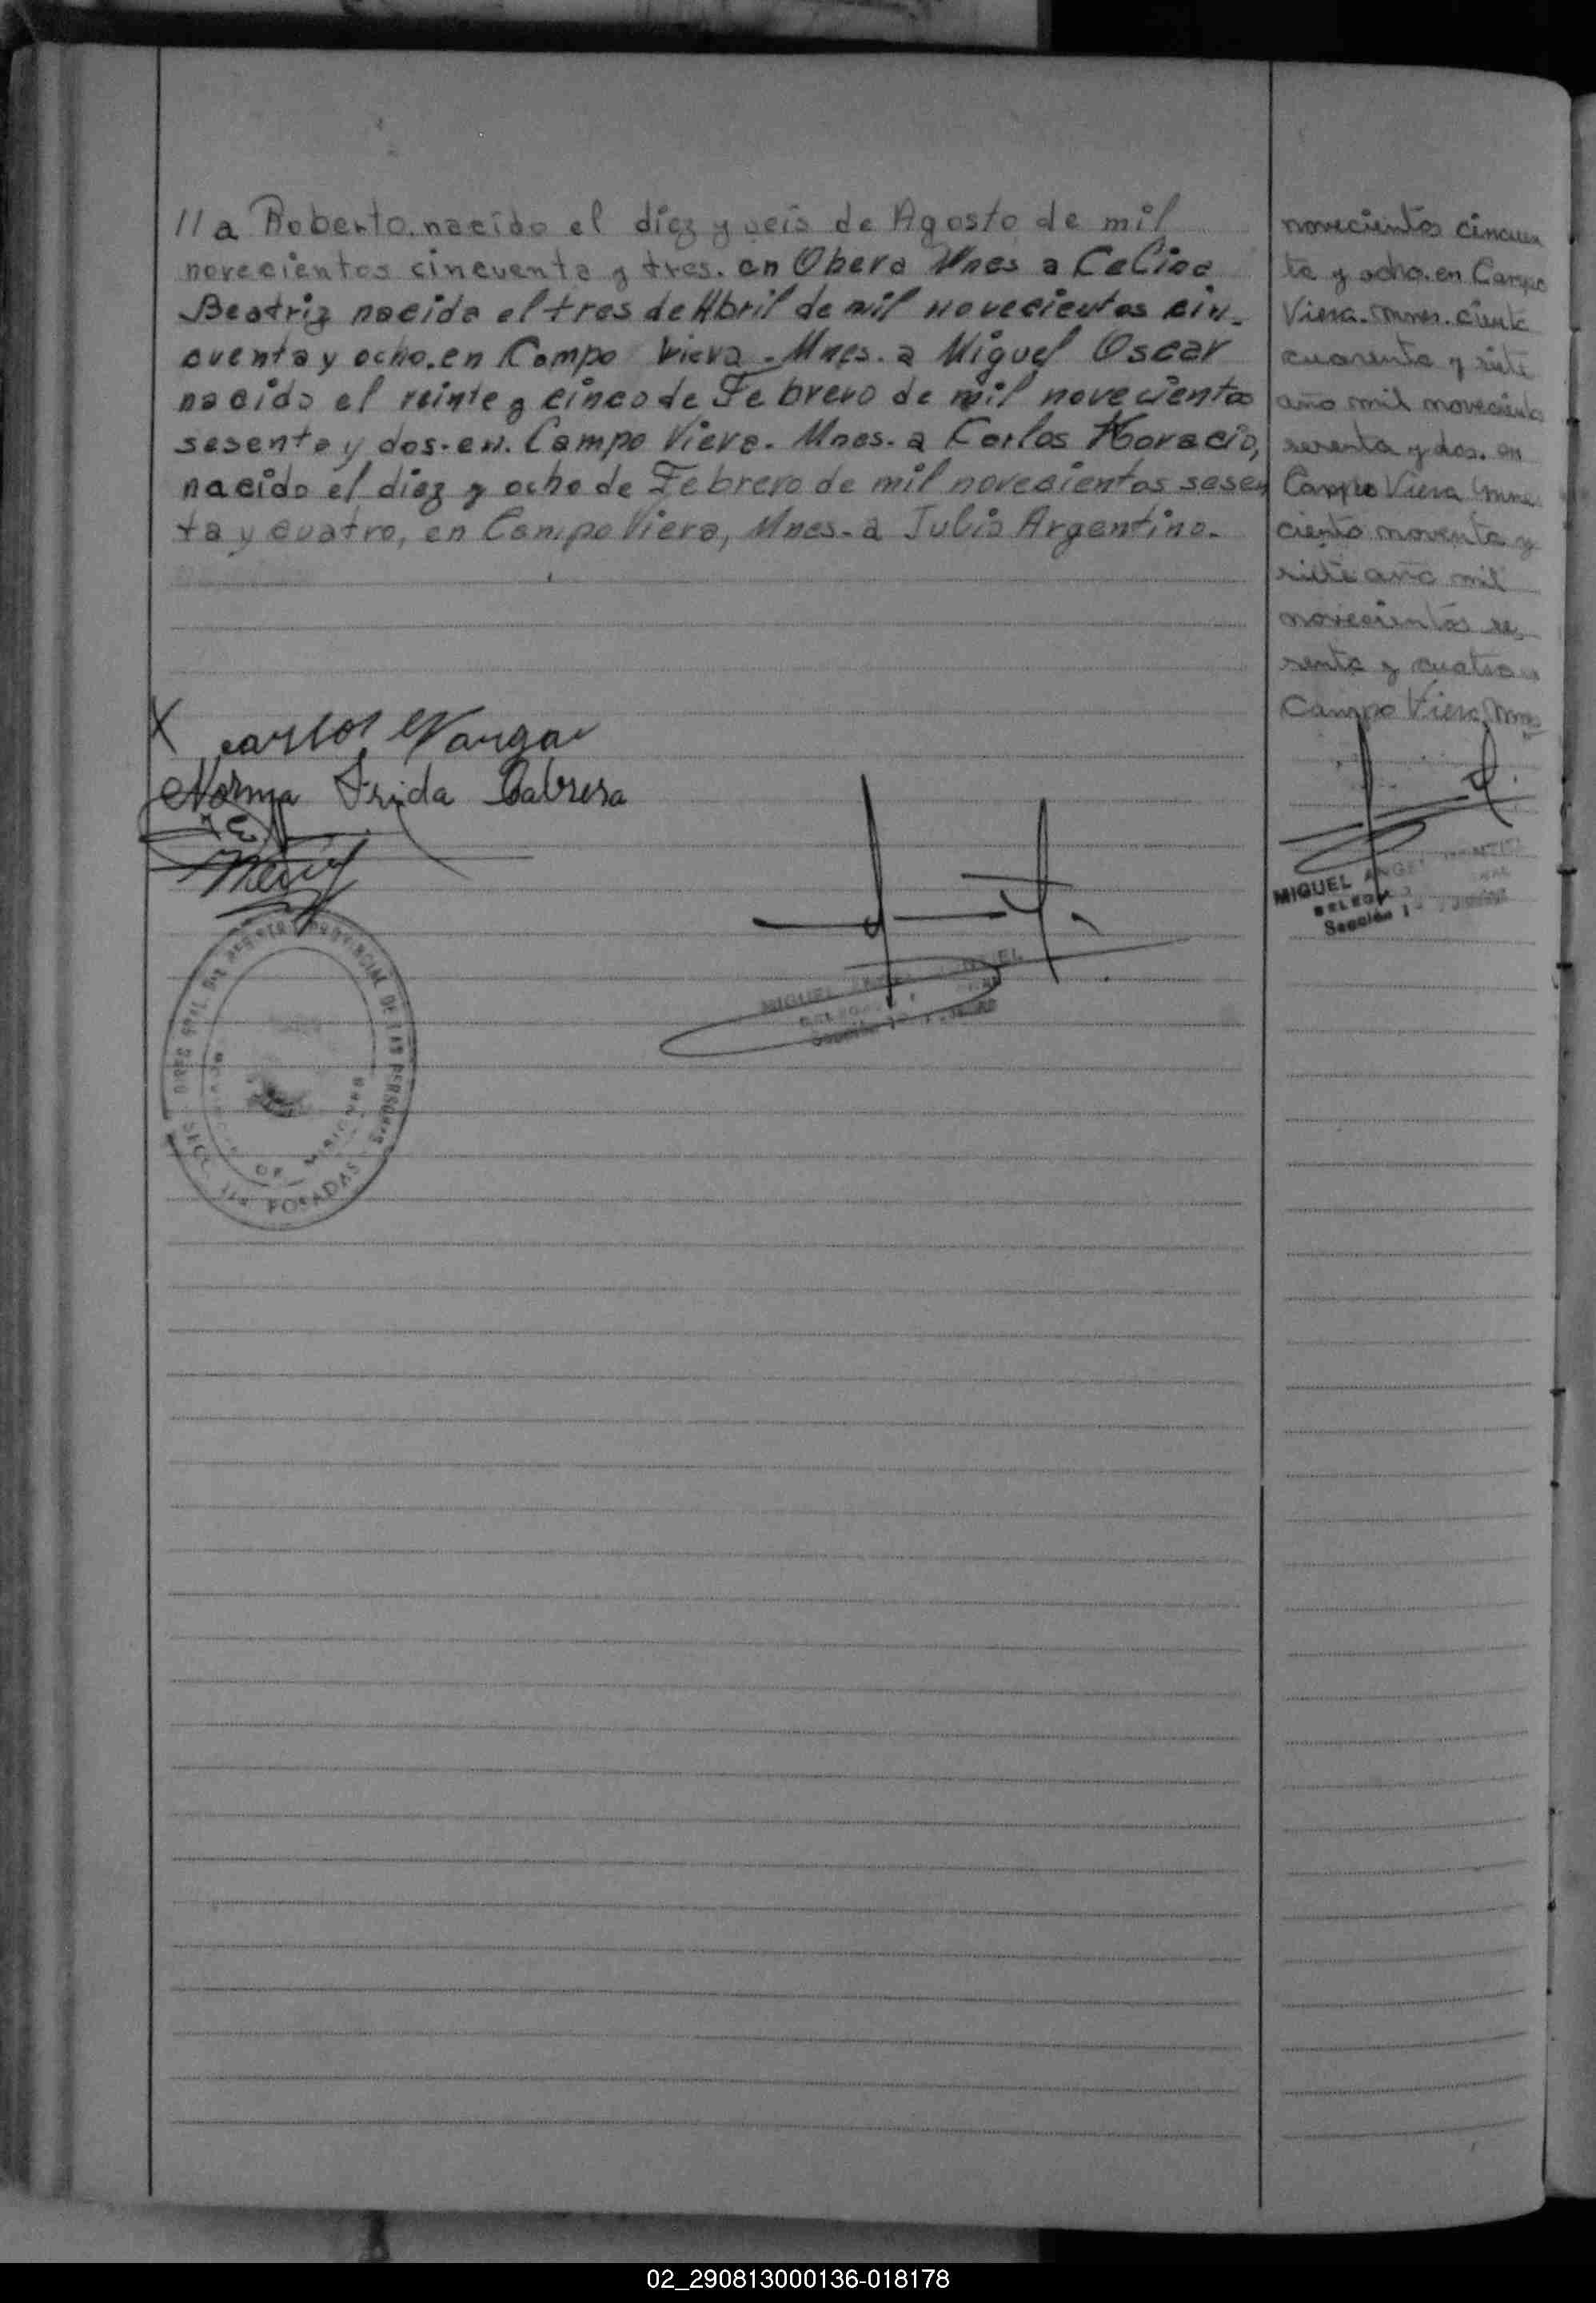 //a Roberto. nacido el diez y seis de Agosto de mil
novecientos cincuenta y tres. en Obera Mnes a Celina
Beatriz nacida el tres de Abril de mil novecientos cin-
cuenta y ocho. en Campo Viera. Mnes. a Miguel Oscar
nacido el veinte y cinco de Febrero de mil novecientos
sesenta y dos. en. Campo Viera. Mnes. a Carlos Horacio,
nacido el diez y ocho de Febrero de mil novecientos sesen
ta y cuatro, en Campo Viera, Mnes. a Julio Argentino.
novecientos cincuen
ta y ocho. en Campo
Viera. Mnes. ciento
cuarenta y siete
año mil novecientos
sesenta y dos. en
Campo Viera Mnes
ciento noventa y
siete año mil
novecientos se
senta y cuatro en
Campo Viera, Mnes
X Carlos Vargas
Norma Frida Cabrera
MIGUEL ANGEL
Sección 1
MIGUEL ANGEL
Sección 1
REGISTRO PROVINCIAL DE LAS PERSONAS
DE MISIONES
SECC. 1ra POSADAS
02_290813000136-018178